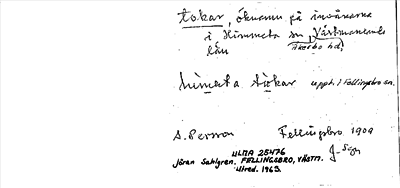 tokar, öknamn på invånarna
i Himmeta sn, Västmanlands
län Åkerbo hd.
himeta tokar uppt. i Fellingsbro sn.
S. Persson Fellingsbro 1909
ULMA 25476
Jöran Sahlgren. FELLINGSBRO, VÄSTM.
Utred. 1963.